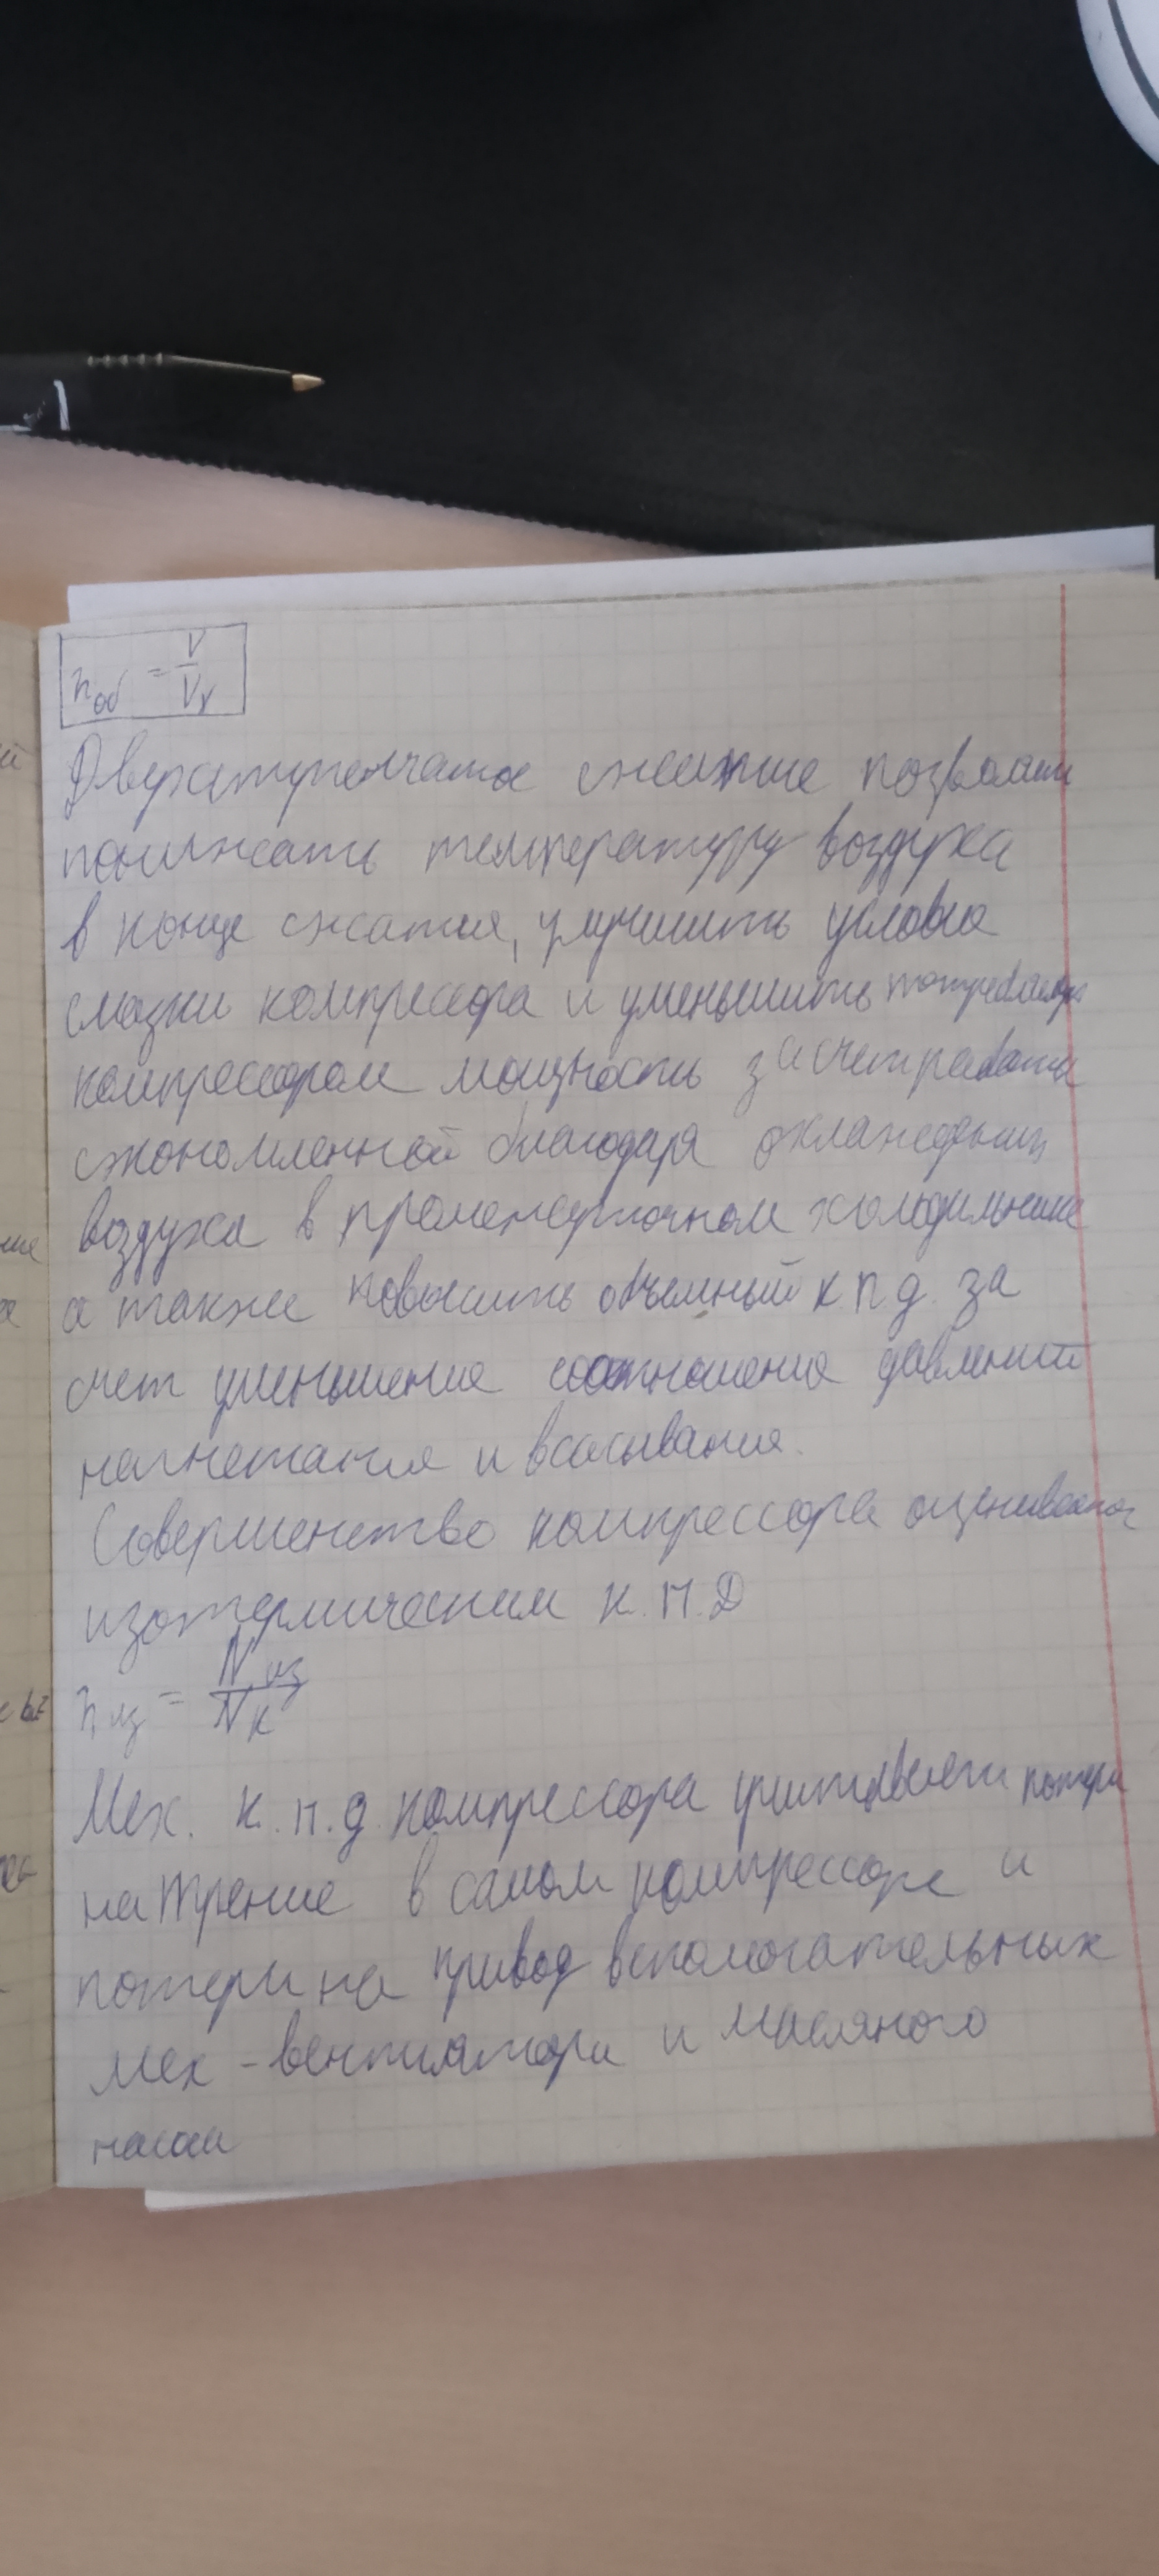 η об = V / Vγ
Двухступенчатое сжатие позволяет
понижать температуру воздуха
в конце сжатия, улучшить условия
смазки компрессора и уменьшить потребляемую
компрессором мощность за счет работы
сэкономленной благодаря охлаждению
воздуха в промежуточном холодильнике
а также повысить объемный к.п.д. за
счет уменьшения соотношения давлений
нагнетания и всасывания.
Совершенство компрессора оценивается
изотермическим к.п.д
η из = N из / N к
Мех. к.п.д. компрессора учитывает потери
на трение в самом компрессоре и
потери на привод вспомогательных
мех - вентилятора и масляного
насоса